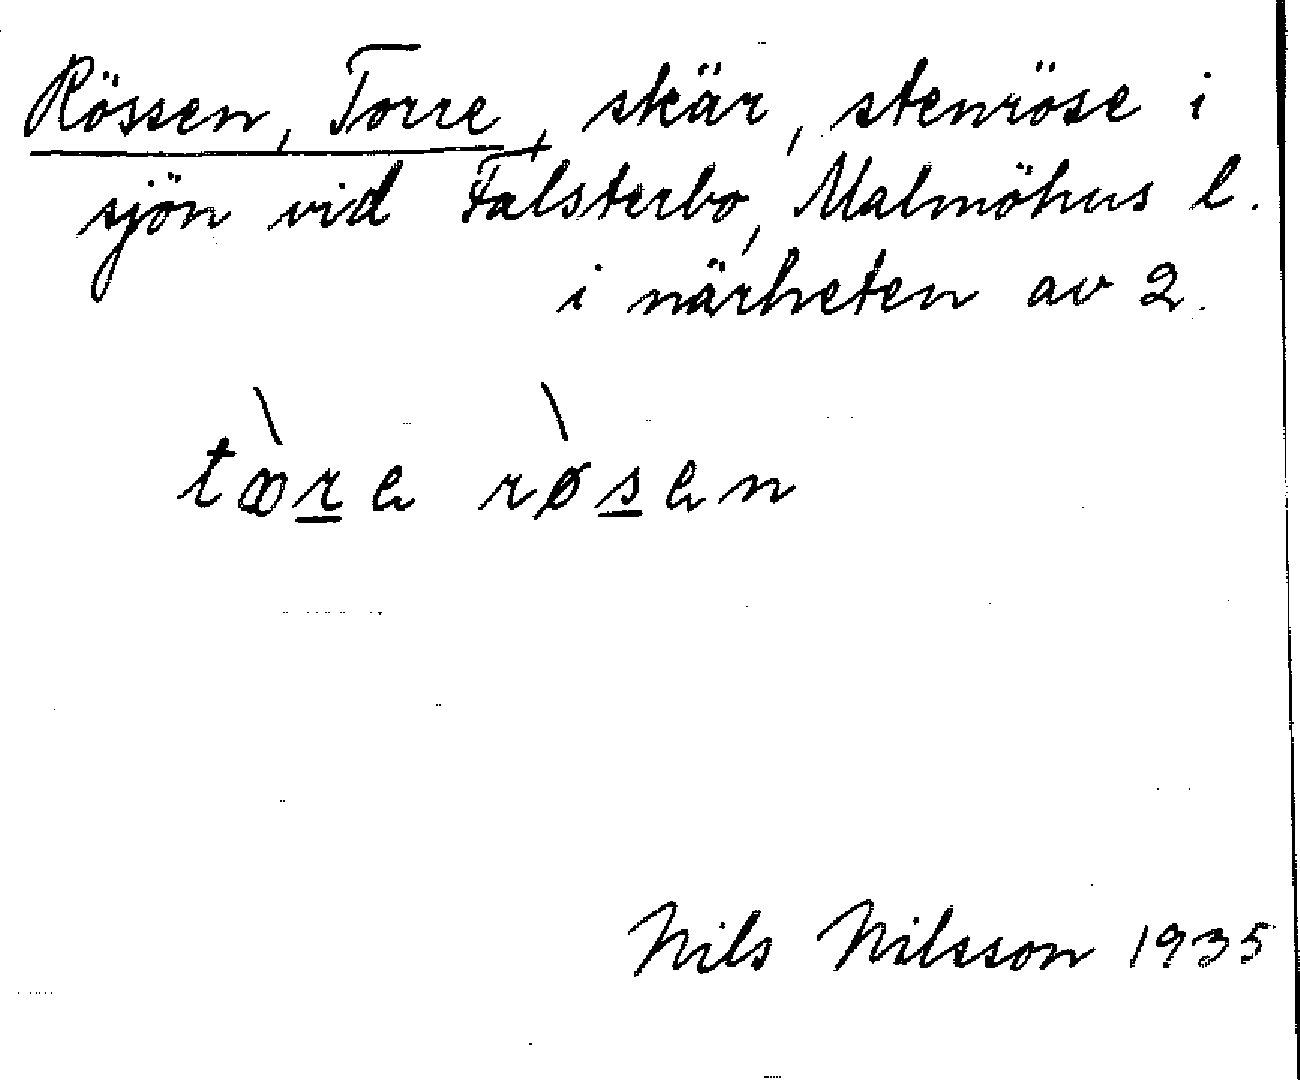 Rössen, Torre, skär, stenröse i
sjön vid Falsterbo, Malmöhus l.
i närheten av 2.
tòre røsen
Nils Nilsson 1935